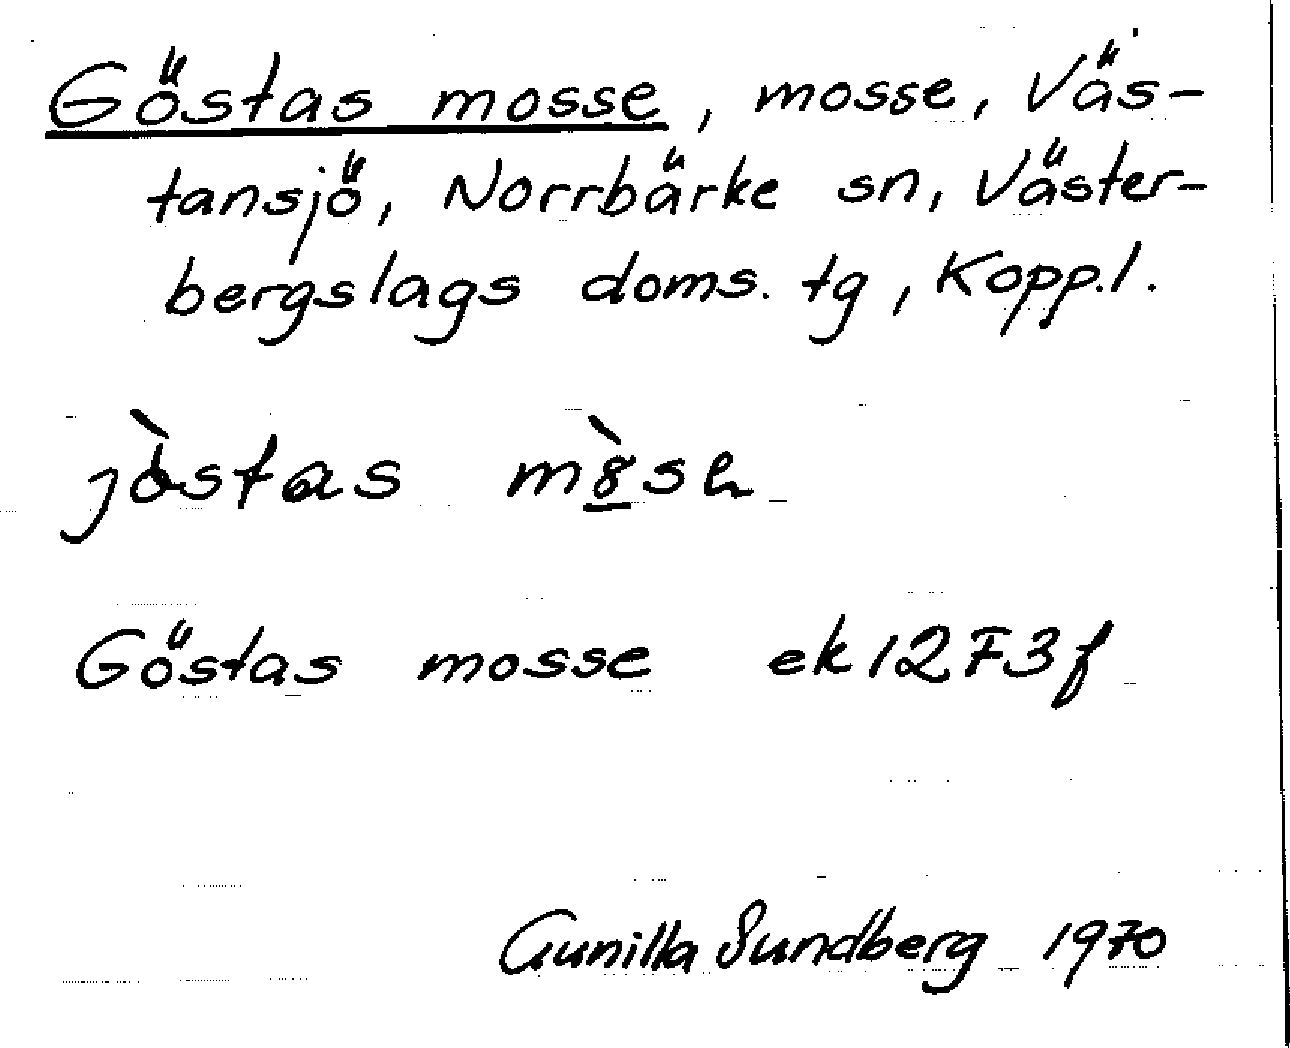 Göstas mosse, mosse, Väs-
tansjö, Norrbärke sn, Väster-
bergslags doms. tg, Kopp.l.
Göstas mosse ek 12F3f
Gunilla Sundberg 1970